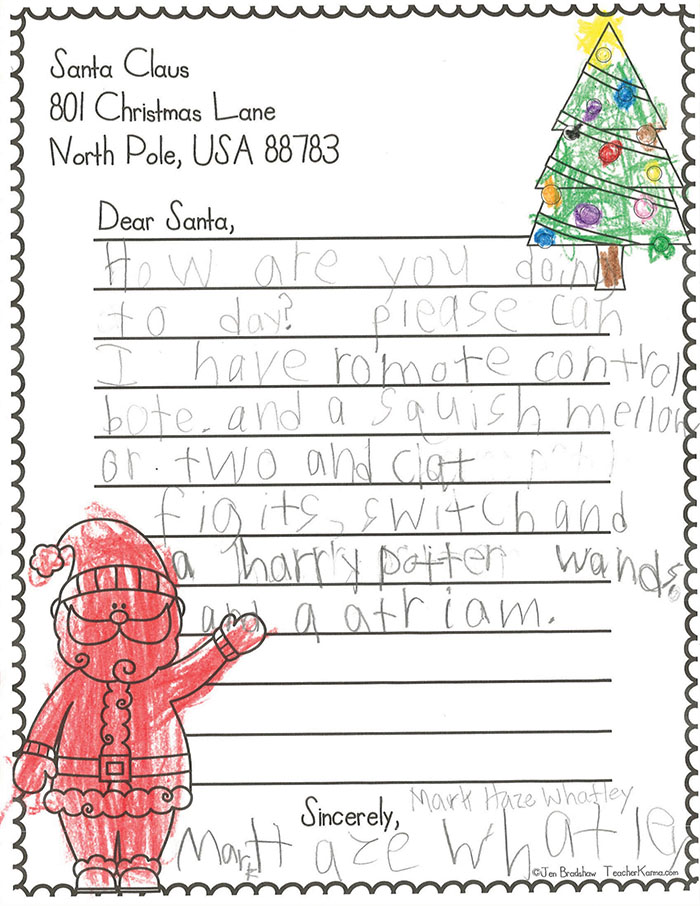 Santa Claus
801 Christmas Lane
North Pole, USA 88783
Dear Santa,
How are you doing
to day? please can
I have romote control
bote. and a squish mellow
or two and clat
figits, switch and
a harry potter wands.
and a atriam.
Sincerely,
Mark Haze Whatley
Mark Haze Whatley
©Jen Bradshaw TeacherKarma.com